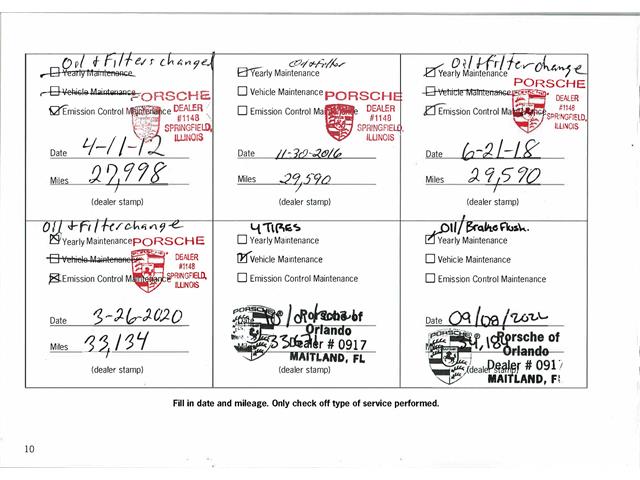 Oil + Filters changed
Yearly Maintenance
Vehicle Maintenance
Emission Control Maintenance
PORSCHE
DEALER
#1148
SPRINGFIELD,
ILLINOIS
Date 4-11-12
Miles 27,998
(dealer stamp)
Oil + Filter
Yearly Maintenance
Vehicle Maintenance
Emission Control Maintenance
PORSCHE
DEALER
#1148
SPRINGFIELD,
ILLINOIS
Date 11-30-2016
Miles 29,590
(dealer stamp)
Oil + Filter change
Yearly Maintenance
Vehicle Maintenance
Emission Control Maintenance
PORSCHE
DEALER
#1148
SPRINGFIELD,
ILLINOIS
Date 6-21-18
Miles 29,590
(dealer stamp)
Oil + Filter change
Yearly Maintenance
Vehicle Maintenance
Emission Control Maintenance
PORSCHE
DEALER
#1148
SPRINGFIELD,
ILLINOIS
Date 3-26-2020
Miles 33,134
(dealer stamp)
4 TIRES
Yearly Maintenance
Vehicle Maintenance
Emission Control Maintenance
PORSCHE
Date
Porsche of
Orlando
Miles
Dealer # 0917
MAITLAND, FL
(dealer stamp)
Oil/Brake Flush.
Yearly Maintenance
Vehicle Maintenance
Emission Control Maintenance
Date 09/08/202
PORSCHE
Porsche of
Orlando
Dealer # 0917
(dealer stamp)
MAITLAND, FL
Fill in date and mileage. Only check off type of service performed.
10